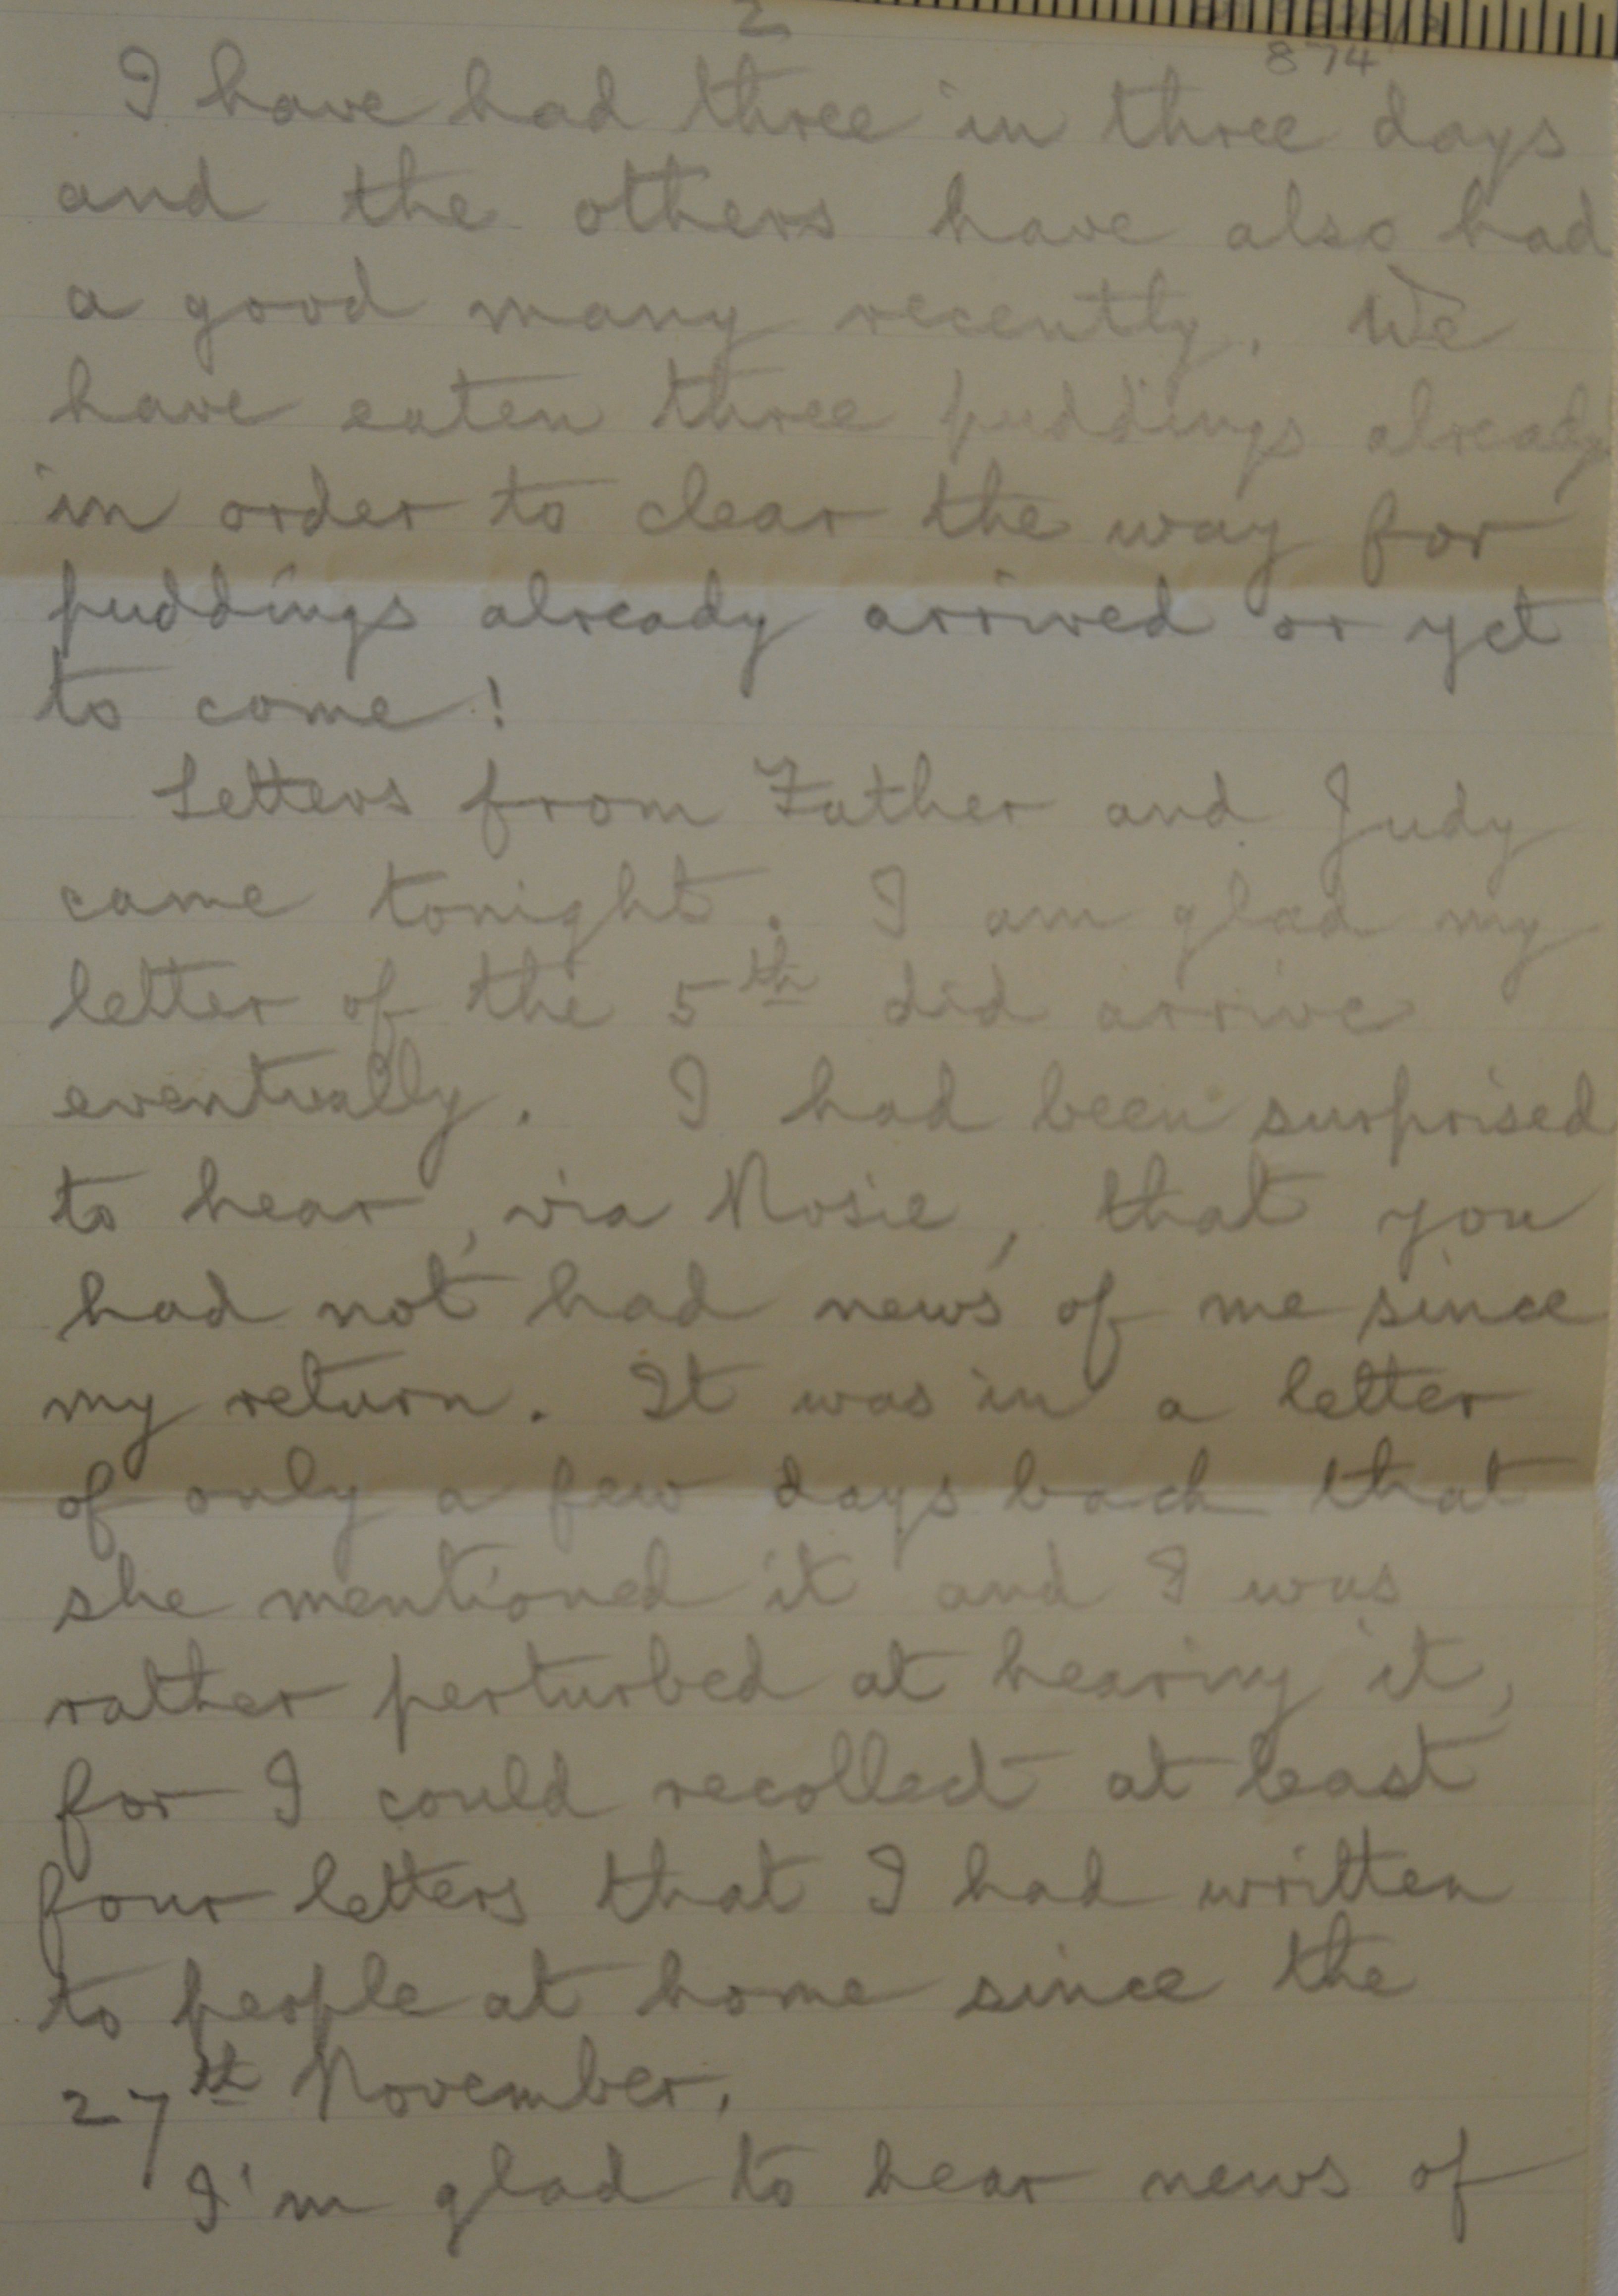 2
874
I have had three in three days
and the others have also had
a good many recently. We
have eaten three puddings already
in order to clear the way for
puddings already arrived or yet
to come!
Letters from Father and Judy
came tonight. I am glad my
letter of the 5th did arrive
eventually. I had been surprised
to hear, via Rosie, that you
had not had news of me since
my return. It was in a letter
of only a few days back that
she mentioned it and I was
rather perturbed at hearing it,
for I could recollect at least
four letters that I had written
to people at home since the
27th November.
I'm glad to hear news of